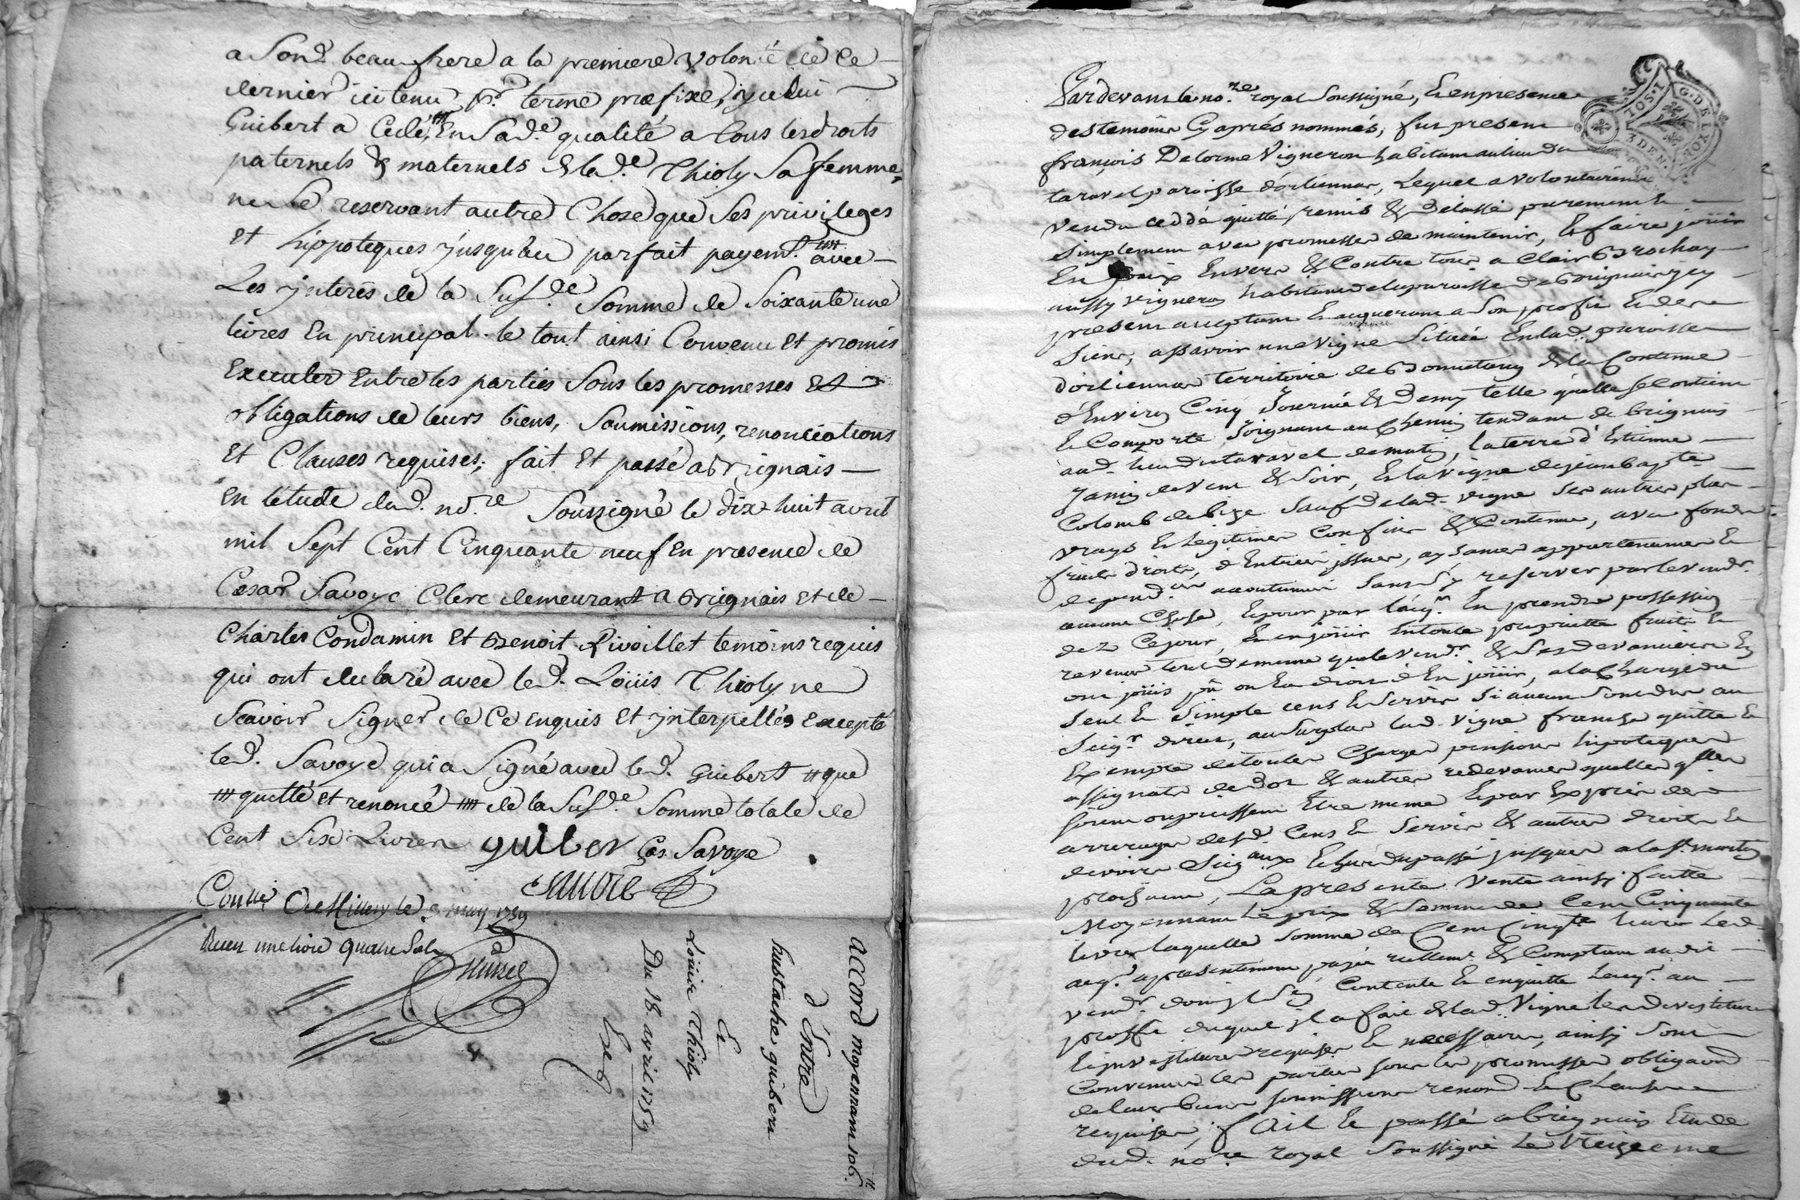 a Sond. beaufrere a la premiere volonté de Ce
dernier ici tenu pr. terme præfixe, yceluy
Guibert a Cedé, En Sade. qualité a tous les droits
paternels & maternels & lade. Thioly Sa femme,
ne Se reservant autre Chose que Ses privileges
et hippoteques jusqu'au parfait payemt. avec
Les jnterês de la Susde. Somme de Soixante une
livres En principal. le tout ainsi Convenu et promis
Executer Entre les parties Sous les promesses Et
obligations de leurs biens, Soumissions, renonciations
et Clauses requises; fait et passé a Brignais
en letude dud. nore. Soussigné le dix huit avril
mil Sept Cent Cinquante neuf En presence de
Cesar Savoye Clerc demeurant a Brignais et de
Charles Condamin et Benoit Rivoillet temoins requis
qui ont declaré avec led. Loüis Thioly ne
Scavoir Signer de Ce enquis et jnterpellés excepté
led. Savoye qui a Signé avec led. Guibert que
quitté et renoncé de la Susde. Somme totale de
Cent Six Livres guiber Cs. Savoye
Conllé A Millery le 3 may 1759
Receu une livre quatre Sols
accord moyennant 106 ll
d'Entre
Eustache guibert
Et
Louise Thioly
Du 18 avril 1759
G. DE LYON
Pardevant le nore. royal Soussigné, & en presence
des temoins Cy aprés nommés, fut present
françois Delorme Vigneron habitant au lieu du
taravel paroisse d'orlienas, Lequel a volontairement
vendu cedé quitté, remis & delaissé purement &
simplement avec promesse de maintenir, & faire joüir
En paix Envers & Contre tous a Clair Brochay
aussy vigneron habitant de la paroisse de Brignais jcy
present acceptant & acquerant a Son profit & des
Siens, assavoir une vigne Située En lad. paroisse
d'orlienas territoire de la Contenue
d'Environ Cinq Journée & demy telle quelle Se contient
& Comporte Joignant au Chemin tendant de brignais
aud. lieu du taravel de matin, la terre d'Etienne
Jamin de vent & Soir, & la vigne de jean bapte.
Colomb de bize Sauf de lad. vigne Ses autres plus
vrays & legitimes Confins & Contenue, avec fonds
fruits droits, d'Entrées jssues, aysances appartenances &
dependces. accoutumées Sans S'y reserver par le vendr.
aucune Chose, & pour par l'acqr. En prendre possession
dez Cejour, & en joüir En toute proprieté fruits &
revenus tout de meme que le vendr. & Ses devanciers En
ont joüis pû ou Eu droit d'En joüir, a la Charge du
Seul & Simple cens & Servis Si aucun Sont dus au
Seigr. direct, au Surplus lad. vigne franche quitte &
Exempte de toutes Charges pensions hipoteques
assignats de dot & autres redevances quelles qu'elles
soient ou puissent Etre meme & par Exprés des
arrerages desd. Cens & Servis & autres droits &
devoirs Seigaux. & du passé jusques a la St. martin
prochaine, La presente vente ainsy faitte
Moyennant Le prix & Somme de Cent Cinquante
livres laquelle Somme de Cent Cinqte. livres Led.
acqr. a presentement payée reellemt. & Comptant audit
vendr. Contente & en quitte Lacqr. au
proffit duquel jl a fait de lad. Vigne les devestitures
& jnvestitures requises & necessaires, ainsy Sont
Convenues les parties sous les promesses obligaons.
de leurs biens soumissions renonc. & Clauses
requises; fait & passé a brignais Etude
dud. nore. royal Soussigné Le treizieme